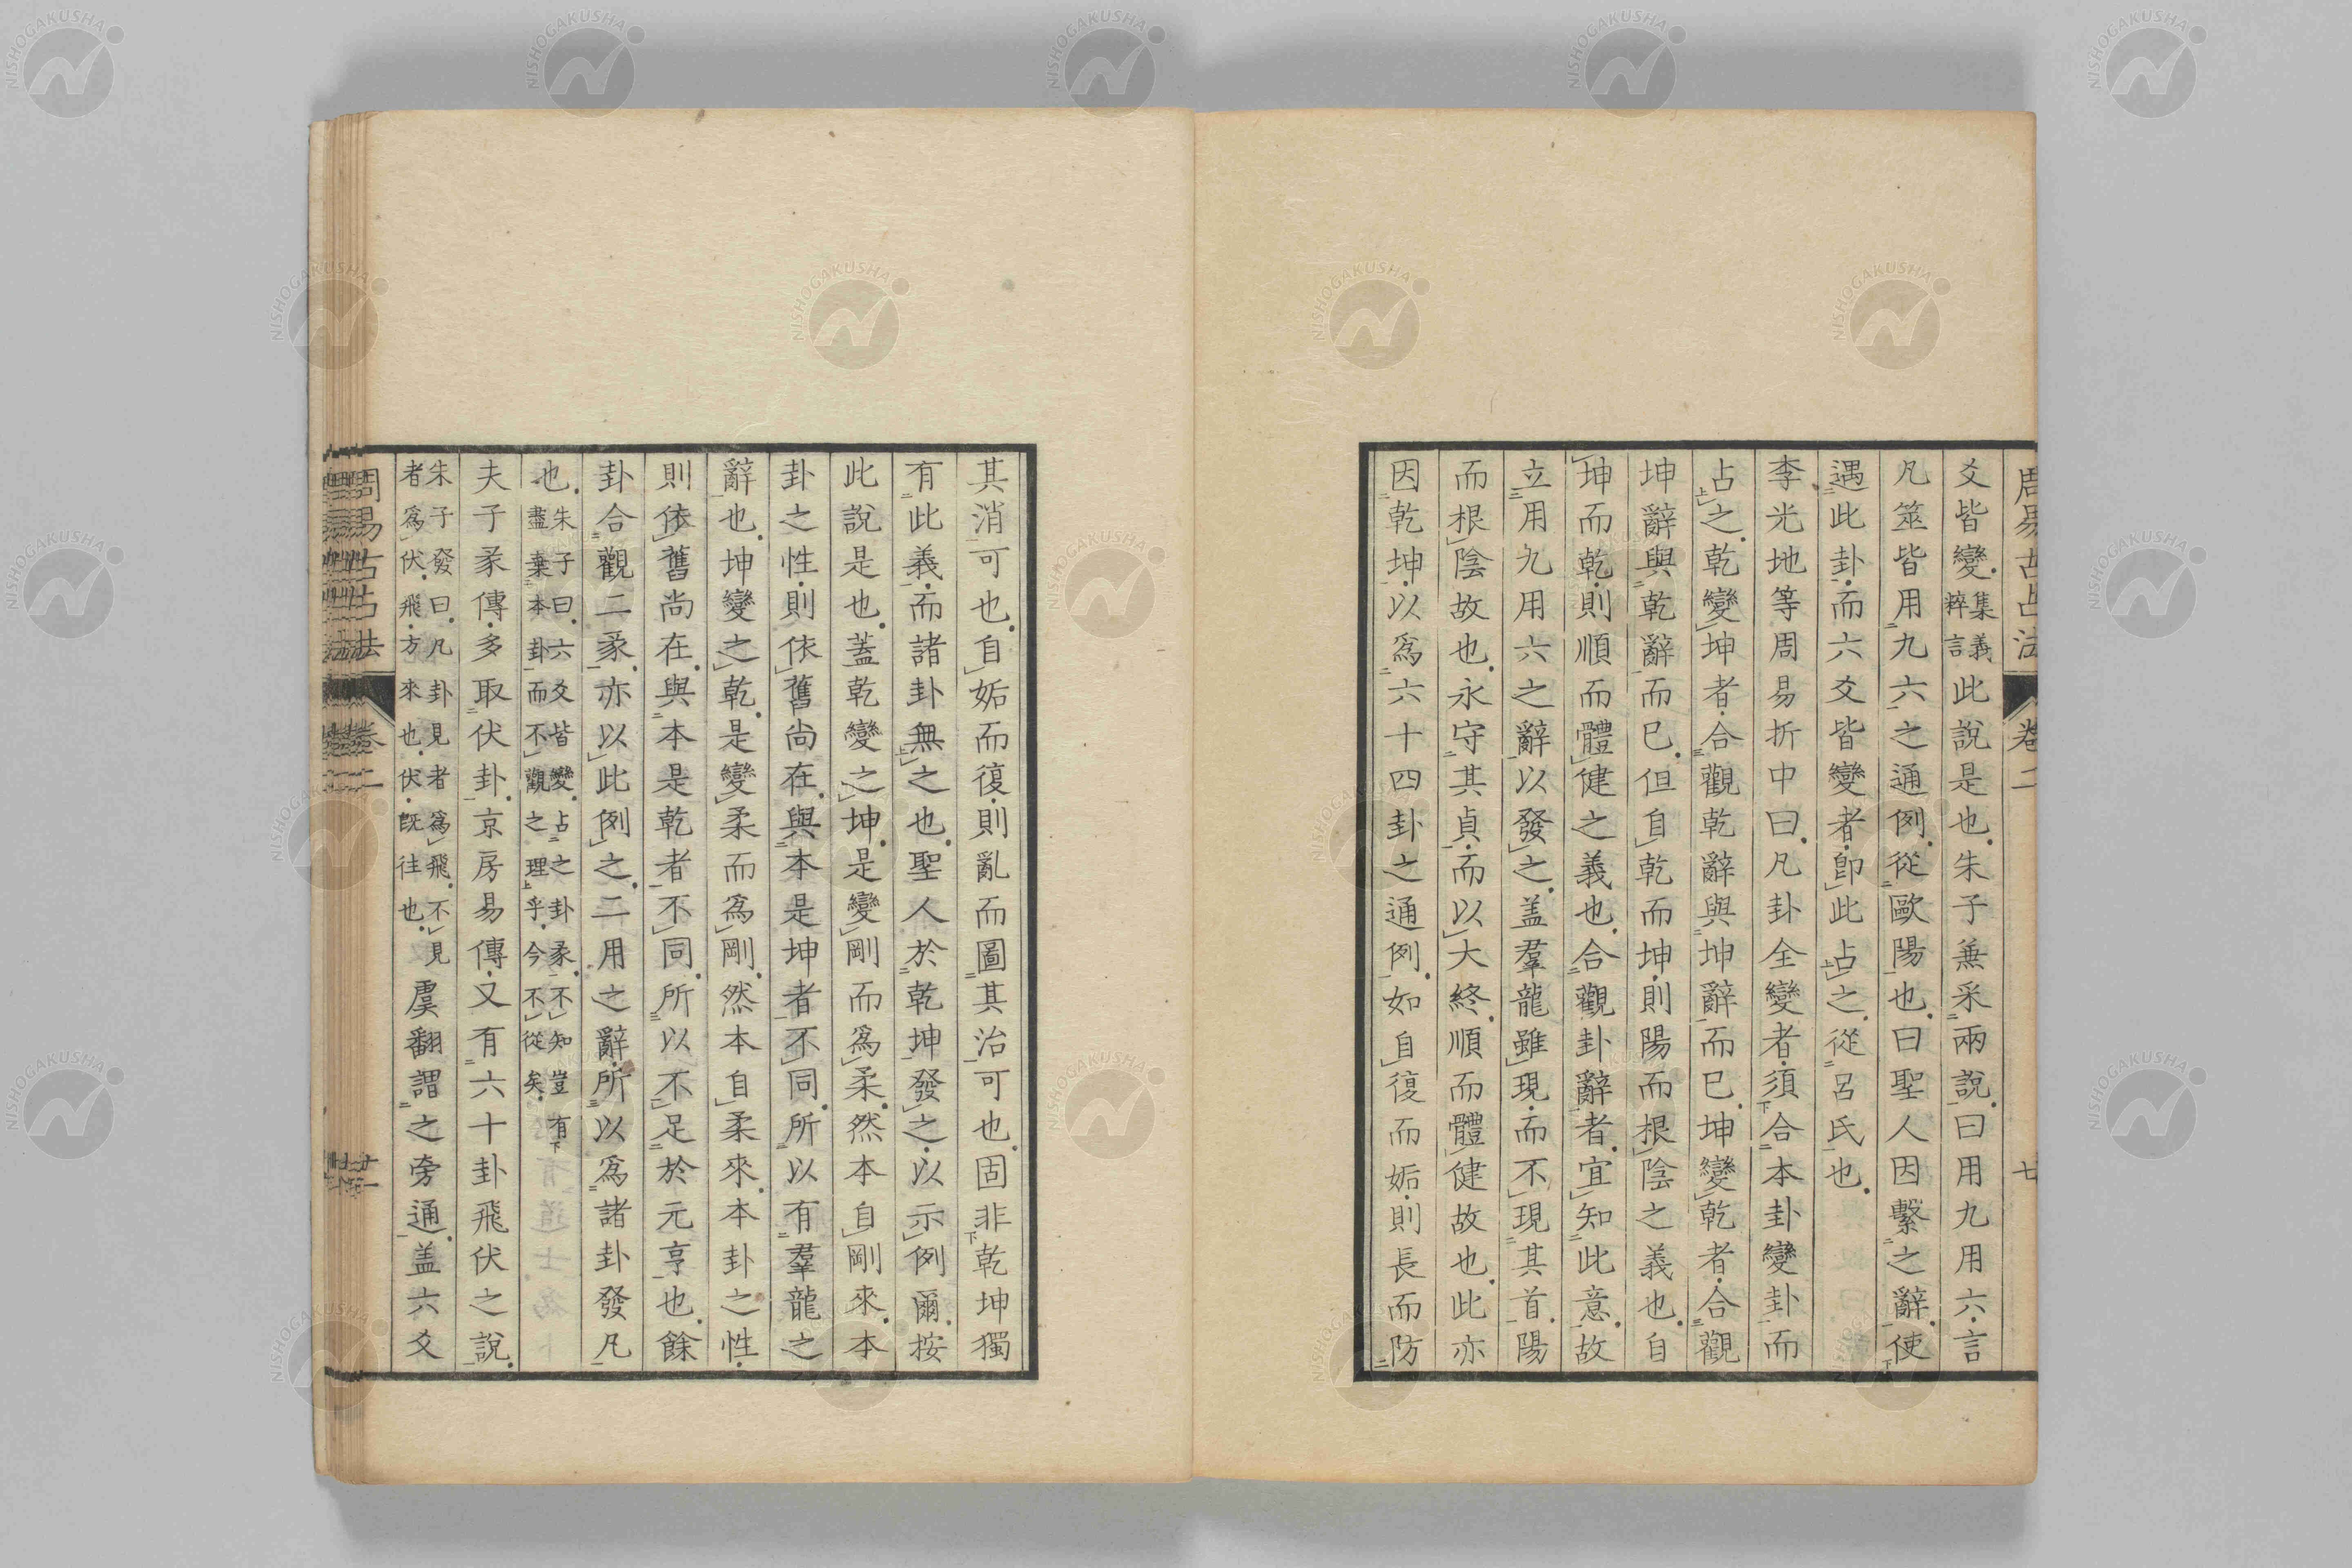 周易古占法 卷二 七
爻皆變集義粹言此說是也朱子兼采兩說曰用九用六言
凡筮皆用九六之通例從歐陽也曰聖人因繫之辭使
遇此卦而六爻皆變者卽此占之從呂氏也
李光地等周易折中曰凡卦全變者須合本卦變卦而
占之乾變坤者合觀乾辭與坤辭而已坤變乾者合觀
坤辭與乾辭而已但自乾而坤則陽而根陰之義也自
坤而乾則順而體健之義也合觀卦辭者宜知此意故
立用九用六之辭以發之蓋羣龍雖現而不現其首陽
而根陰故也永守其貞而以大終順而體健故也此亦
因乾坤以爲六十四卦之通例如自復而姤則長而防
其消可也自姤而復則亂而圖其治可也固非乾坤獨
有此義而諸卦無之也聖人於乾坤發之以示例爾按
此說是也蓋乾變之坤是變剛而爲柔然本自剛來本
卦之性則依舊尚在與本是坤者不同所以有羣龍之
辭也坤變之乾是變柔而爲剛然本自柔來本卦之性
則依舊尚在與本是乾者不同所以不足於元亨也餘
卦合觀二彖亦以此例之二用之辭所以爲諸卦發凡
也朱子曰六爻皆變占之卦彖不知豈有盡棄本卦而不觀之理乎今不從矣
夫子彖傳多取伏卦京房易傳又有六十卦飛伏之說
朱子發曰凡卦見者爲飛不見者爲伏飛方來也伏既往也虞翻謂之旁通蓋六爻
周易古占法 卷二
NISHOGAKUSHA